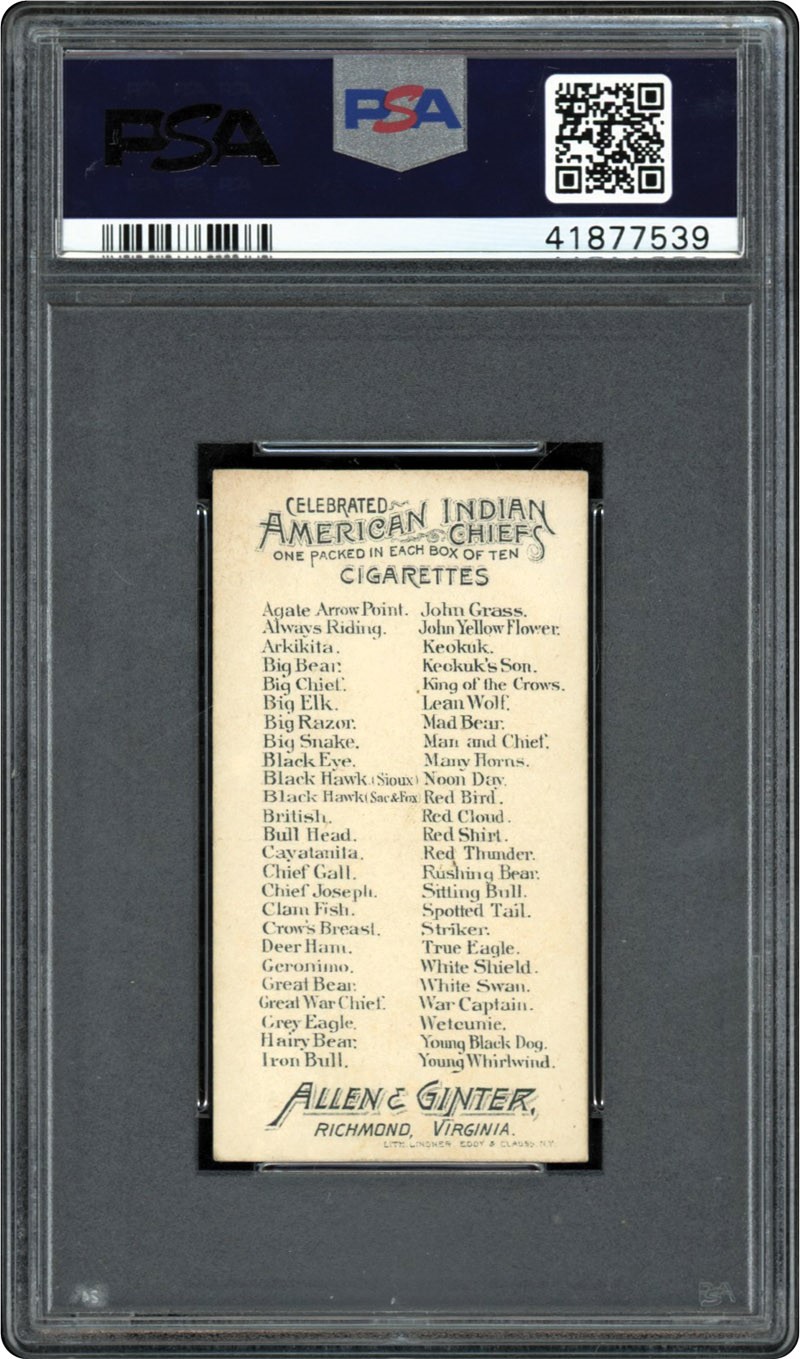 PSA
PSA
41877539
CELEBRATED
AMERICAN INDIAN
CHIEFS
ONE PACKED IN EACH BOX OF TEN
CIGARETTES
Agate Arrow Point.
Always Riding.
Arkikita.
Big Bear.
Big Chief.
Big Elk.
Big Razor.
Big Snake.
Black Eye.
Black Hawk (Sioux)
Black Hawk (Sac & Fox)
British.
Bull Head.
Cayatanita.
Chief Gall.
Chief Joseph.
Clam Fish.
Crow's Breast.
Deer Ham.
Geronimo.
Great Bear.
Great War Chief.
Grey Eagle.
Hairy Bear.
Iron Bull.
John Grass.
John Yellow Flower.
Keokuk.
Keokuk's Son.
King of the Crows.
Lean Wolf.
Mad Bear.
Man and Chief.
Many Horns.
Noon Day.
Red Bird.
Red Cloud.
Red Shirt.
Red Thunder.
Rushing Bear.
Sitting Bull.
Spotted Tail.
Striker.
True Eagle.
White Shield.
White Swan.
War Captain.
Wetcunie.
Young Black Dog.
Young Whirlwind.
ALLEN & GINTER,
RICHMOND, VIRGINIA.
LITH. LINDNER, EDDY & CLAUSS, N.Y.
PSA